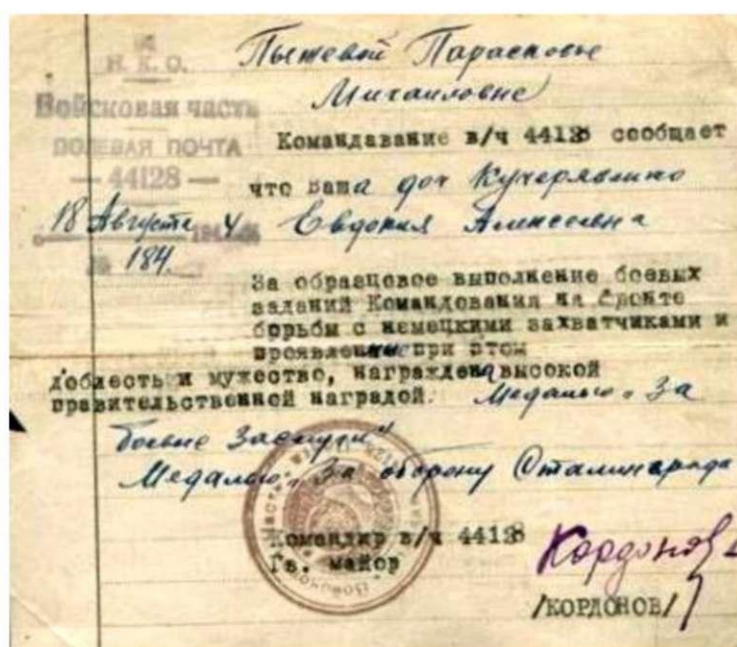 Н. К. О.
Войсковая часть
ПОЛЕВАЯ ПОЧТА
— 44128 —
18 Августа 194 4
№ 184.
Пыжевой Парасковье
Михаиловне
Командавание в/ч 44128 сообщает
что ваша доч Кучерявенко
Евдокия Алексеевна
За образцовое выполнение боевых
заданий Командования на фронте
борьбы с немецкими захватчиками и
проявленные при этом
доблесть и мужество, награждена высокой
правительственной наградой. Медалью „За
боевые Заслуги"
Медалью „За оборону Сталинграда
Командир в/ч 44128
Гв. майор
Кордонов
/КОРДОНОВ/